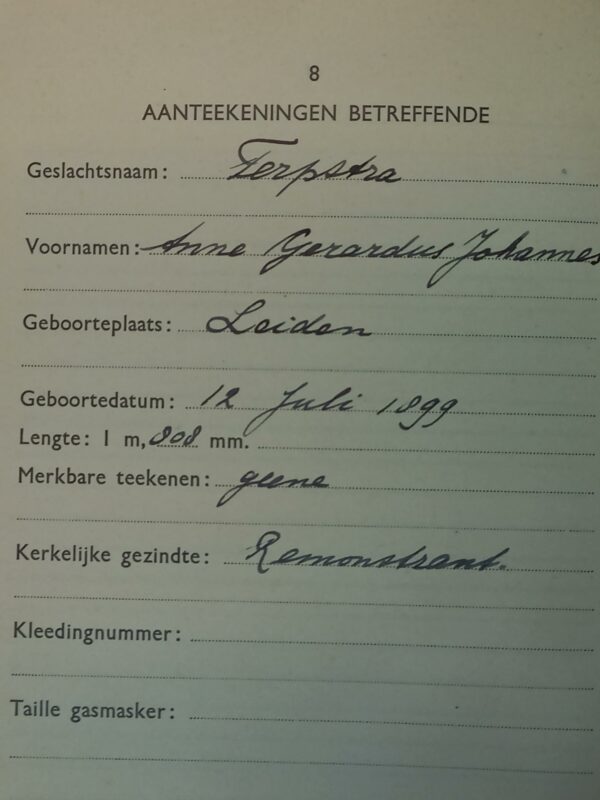 8
AANTEEKENINGEN BETREFFENDE
Geslachtsnaam: Terpstra
Voornamen: Anne Gerardus Johannes
Geboorteplaats: Leiden
Geboortedatum: 12 Juli 1899
Lengte: 1 m, 808 mm.
Merkbare teekenen: geene
Kerkelijke gezindte: Remonstrant.
Kleedingnummer:
Taille gasmasker: